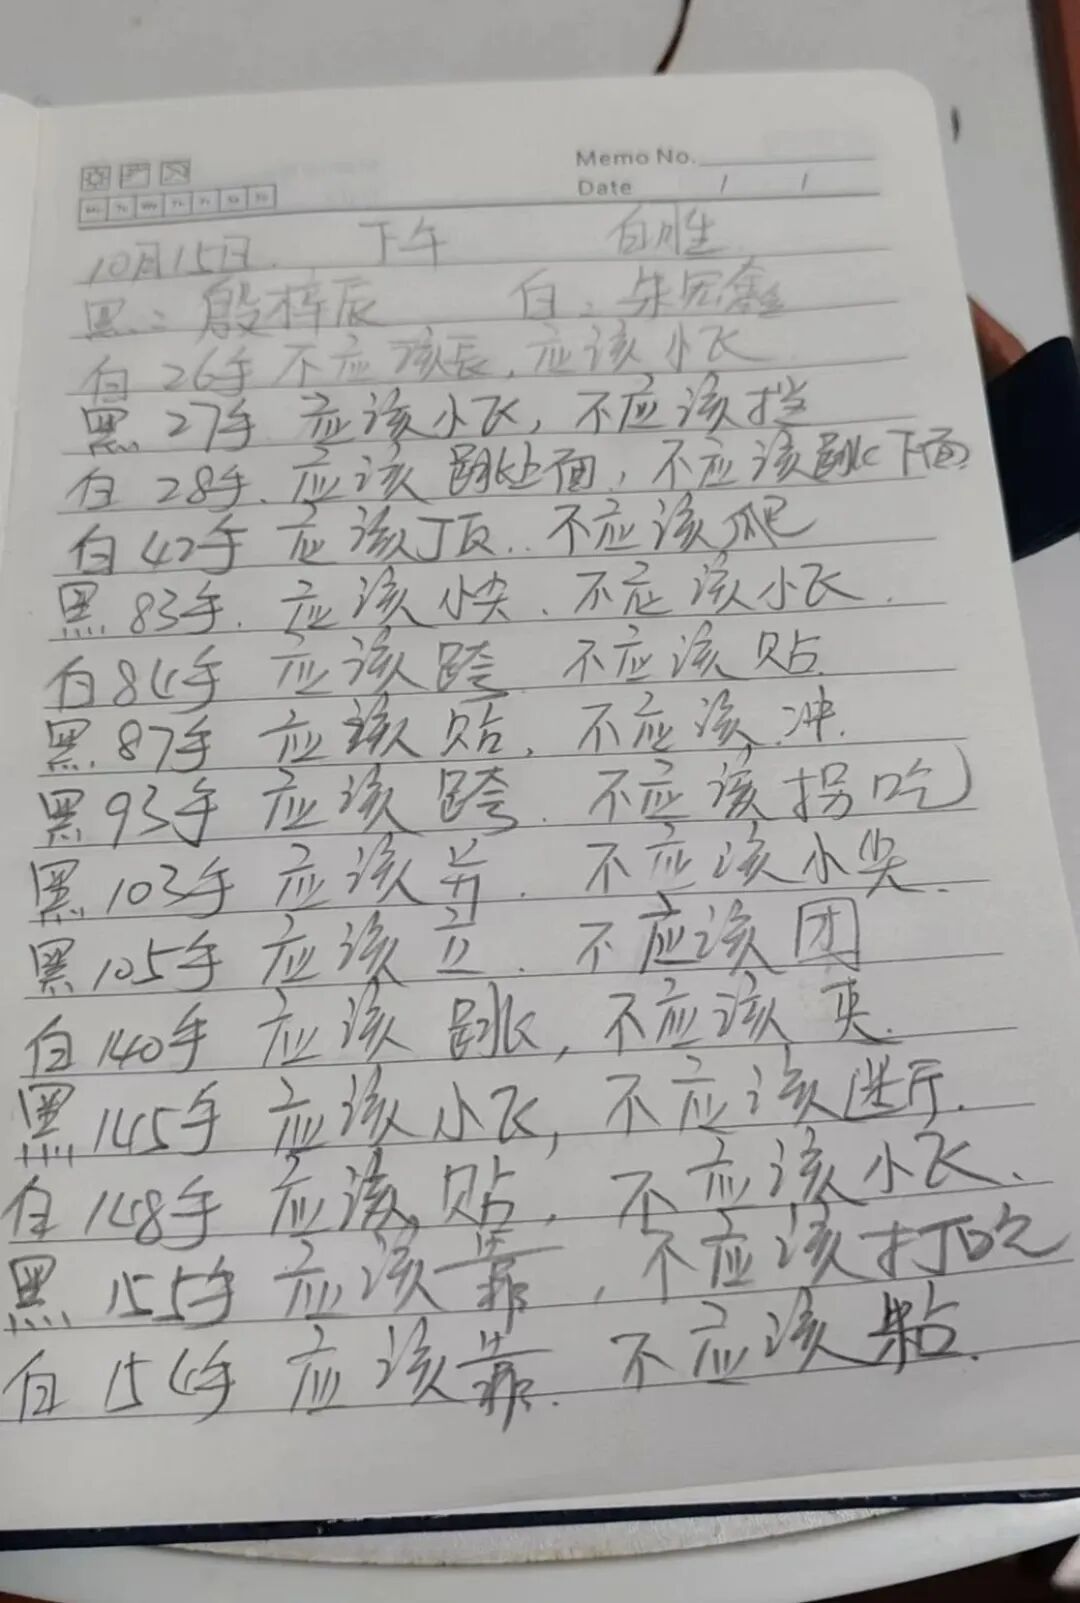 Memo No.
Date / /
10月15日. 下午 白胜
黑:殷梓辰 白:朱宏鑫
白26手不应该长,应该小飞
黑27手 应该小飞,不应该挡
白28手.应该跳上面,不应该跳下面
白42手 应该顶..不应该爬
黑83手.应该小尖.不应该小飞.
白84手 应该跨 不应该贴.
黑87手 应该贴,不应该冲.
黑93手 应该跨.不应该拐吃
黑103手 应该并.不应该小尖.
黑105手 应该立.不应该团
白140手 应该跳,不应该夹.
黑145手 应该小飞,不应该
白148手 应该贴,不应该小飞.
黑155手 应该靠,不应该打吃
白154手 应该靠.不应该粘.